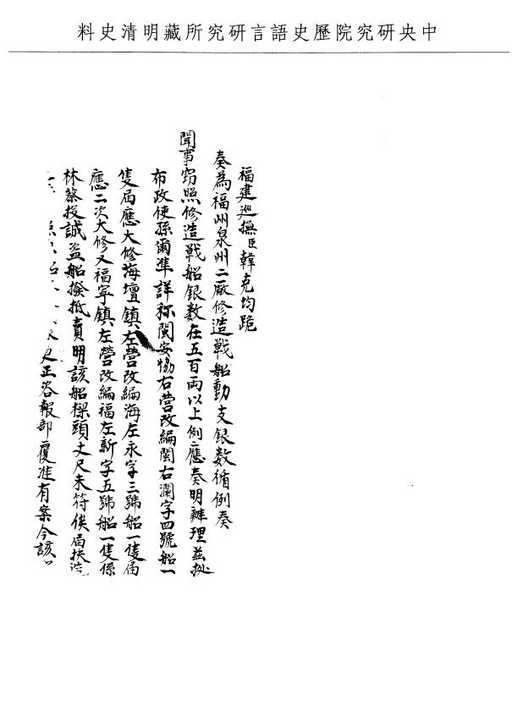 中央研究院歷史語言研究所藏明清史料
福建巡撫臣韓克均跪
奏為福州泉州二廠修造戰船動支銀數循例奏
聞事竊照修造戰船銀數在五百兩以上例應奏明辦理茲據
布政使孫爾準詳稱閩安協右營改編閩右瀾字四號船一
隻屆應大修海壇鎮左營改編海左永字三號船一隻屆
應二次大修又福寧鎮左營改編福左新字五號船一隻係
林蔡投誠盜船撥抵賣明該船樑頭丈尺未符俟屆拆造
更正咨報部覆准有案今該